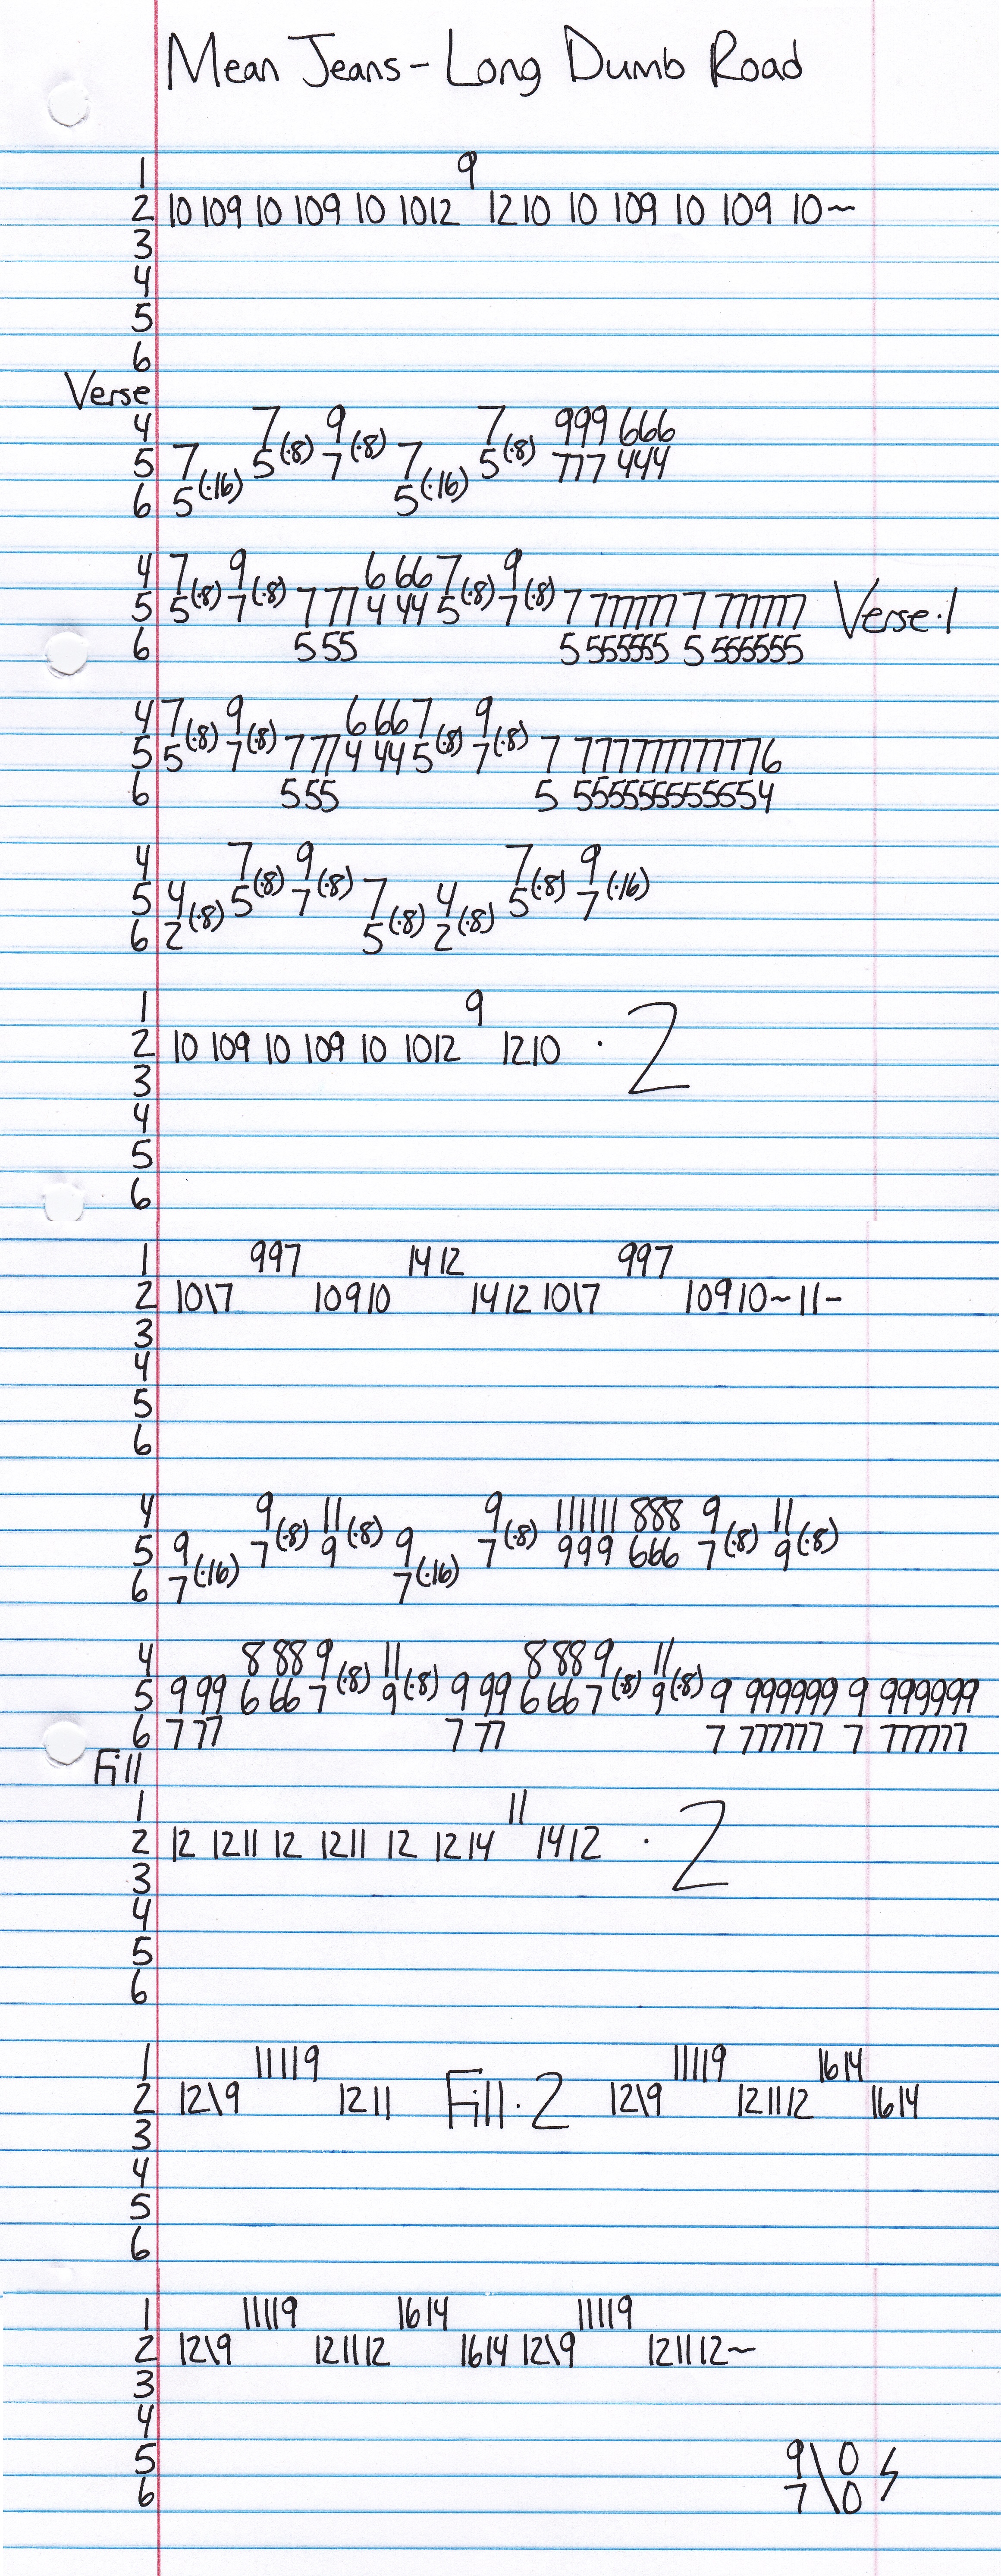 Mean Jeans - Long Dumb Road
1 9
2 10 109 10 109 10 1012 1210 10 109 10 109 10~
3
4
5
6
Verse
4 7(·8) 9(·8) 7(·8) 999 666
5 7(·16) 5 7 7(·16) 5 777 444
6 5 5
4 7(·8) 9(·8) 6 667(·8) 9(·8)
5 5 7 777 4 44 5 7 7 777777 7 777777 Verse·1
6 555 5 555555 5 555555
4 7(·8) 9(·8) 6 667(·8) 9(·8)
5 5 7 777 4 44 5 7 7 777777777776
6 555 5 555555555554
4 7(·8) 9(·8) 7(·8) 9(·16)
5 4(·8) 5 7 7(·8) 4(·8) 5 7
6 2 5 2
1 9
2 10 109 10 109 10 1012 1210 · 2
3
4
5
6
1 997 1412 997
2 10\7 10910 1412 10\7 10910~11-
3
4
5
6
4 9(·8) 11(·8) 9(·8) 111111 888 9(·8) 11(·8)
5 9(·16) 7 9 9(·16) 7 999 666 7 9
6 7 7
4 8 88 9(·8) 11(·8) 8 88 9(·8) 11(·8)
5 9 99 6 66 7 9 9 99 6 66 7 9 9 999999 9 999999
6 7 77 7 77 7 777777 7 777777
Fill
1 11
2 12 1211 12 1211 12 1214 1412 · 2
3
4
5
6
1 11119 11119 1614
2 12\9 1211 Fill·2 12\9 121112 1614
3
4
5
6
1 11119 1614 11119
2 12\9 121112 1614 12\9 121112~
3
4
5 9\0
6 7\0